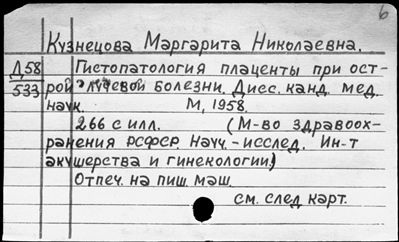 6
Кузнецова Маргарита Николаевна.
Д 58 Гистопатология плаценты при ост-
533 рой лучевой болезни. Дисс. канд. мед.
наук. М, 1958.
266 с илл. (М-во здравоох-
ранения РСФСР. Научн.-исслед. Ин-т
акушерства и гинекологии)
Отпеч. на пиш. маш.
см. след карт.